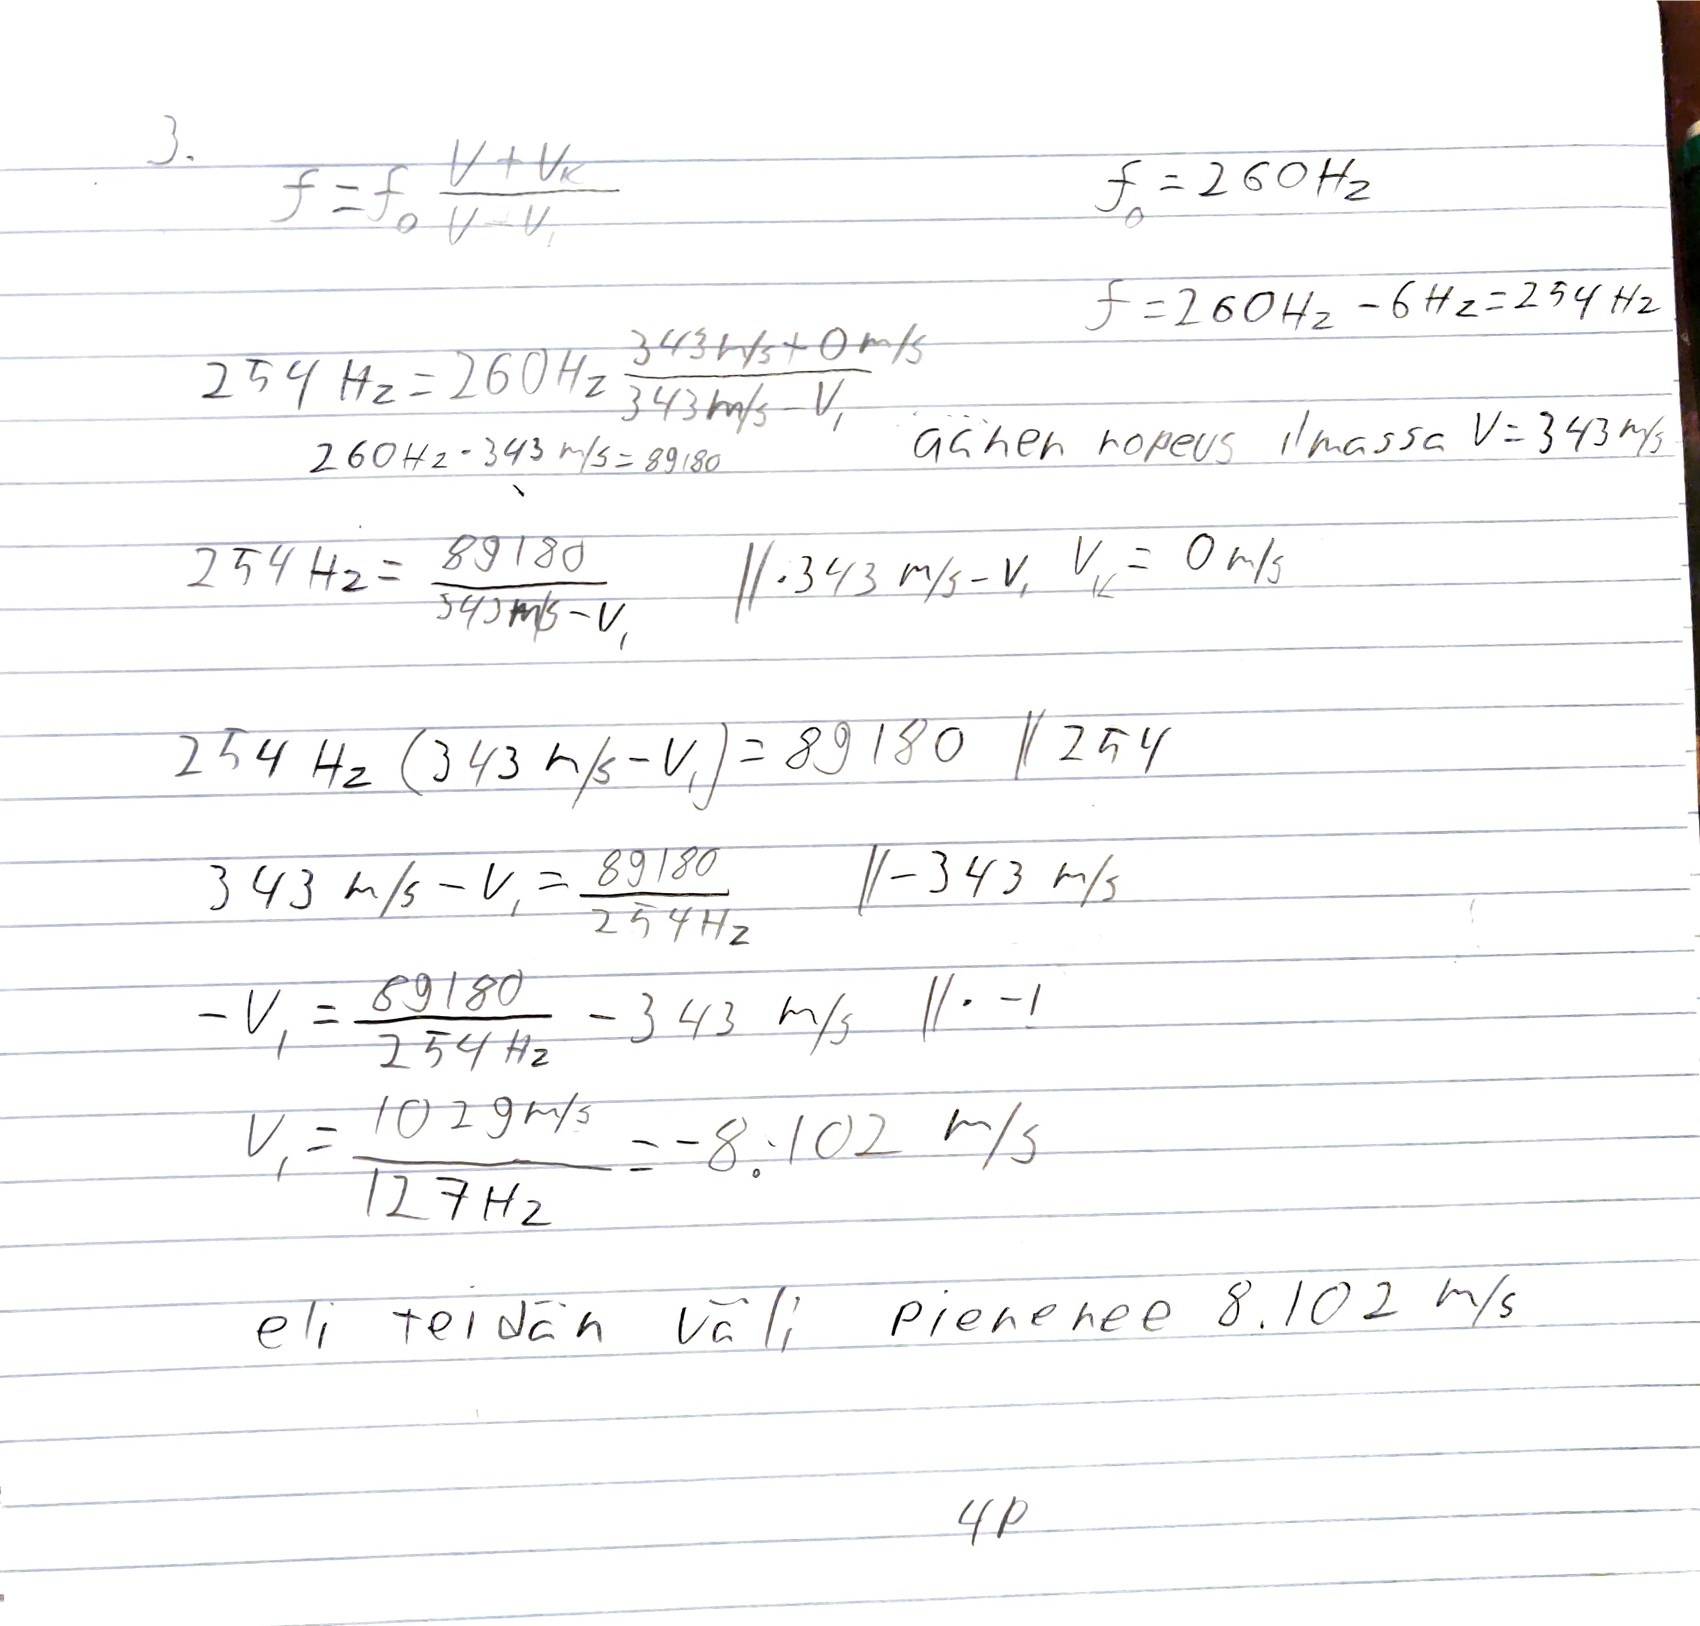 3.
f = f₀ (V + Vₖ)/(V - V₁)
f₀ = 260 Hz
f = 260 Hz - 6 Hz = 254 Hz
254 Hz = 260 Hz (343 m/s + 0 m/s)/(343 m/s - V₁)
260 Hz · 343 m/s = 89180
äänen nopeus ilmassa V = 343 m/s
254 Hz = 89180/(343 m/s - V₁) || · 343 m/s - V₁
Vₖ = 0 m/s
254 Hz (343 m/s - V₁) = 89180 || 254
343 m/s - V₁ = 89180/254 Hz || - 343 m/s
-V₁ = 89180/254 Hz - 343 m/s || · -1
V₁ = 1029 m/s/127 Hz = -8.102 m/s
eli teidän väli pienenee 8.102 m/s
4p